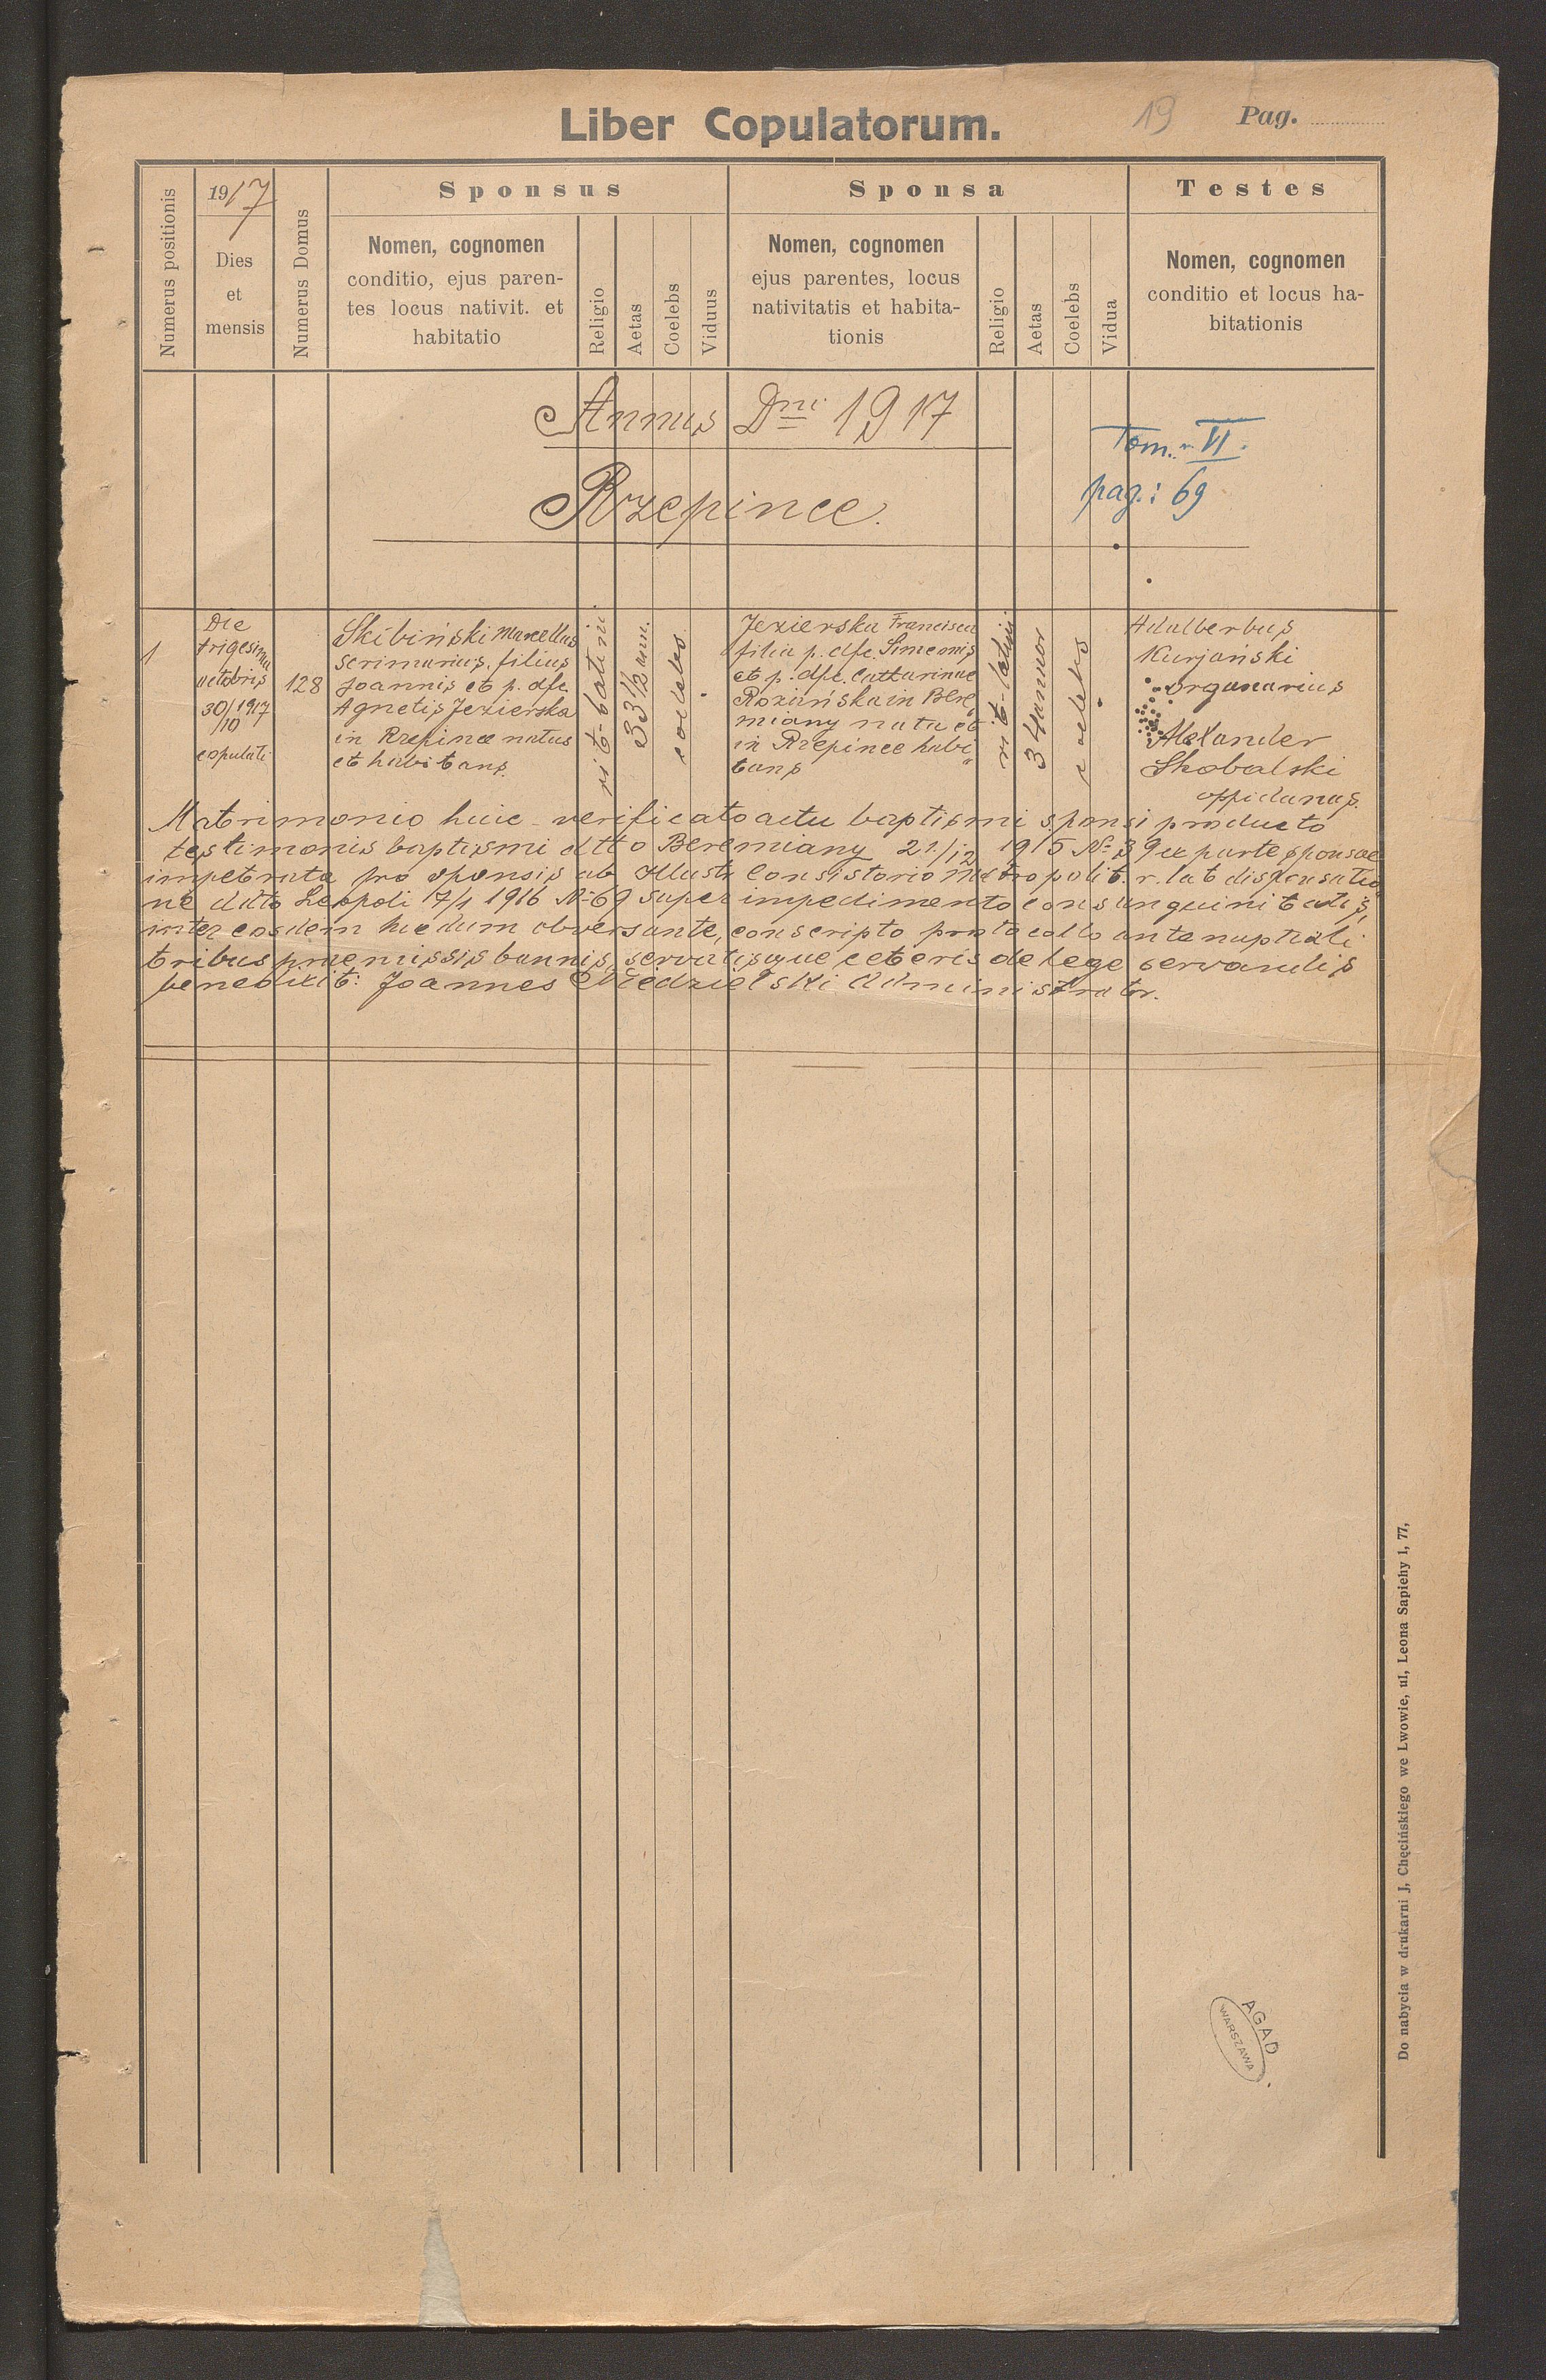 Liber Copulatorum.
19 Pag.
Numerus positionis
1917
Dies
et
mensis
Numerus Domus
Sponsus
Nomen, cognomen
conditio, ejus paren-
tes locus nativit. et
habitatio
Religio
Aetas
Coelebs
Viduus
Sponsa
Nomen, cognomen
ejus parentes, locus
nativitatis et habita-
tionis
Religio
Aetas
Coelebs
Vidua
Testes
Nomen, cognomen
conditio et locus ha-
bitationis
Annus Dni 1917
Rzepince.
Tom. VI.
pag.: 69
1
Die
trigesima
octobris
30/1917
/10
copulati
128
Skibiński Marcellus
filius
Joannis et p. dfc.
Agnetis Jezierska
in Rzepince natus
et habitans.
rit-latini
33 1/2 ann.
coelebs
Jezierska Francisca
filia p. dfc. Simeonis
et p. dfc. Cattarinae
Roziańska in Bere
miany nata et
in Rzepince habi
tans
rit-latini
34 annor
coelebs
Adalbertus
Kurjański
organarius
Alexander
Skobalski
oppidanus.
Matrimonio huic verificato actu baptismi sponsi producto
testimonis baptismi dtto Beremiany 21/12 1915 No 39 ex parte sponsae
impetrata pro sponsis ab Illustr Consistorio Metropolit. r. lat dispensatio
ne ddto Leopoli 17/1 1916 No 69 super impedimento consanguinitatis,
inter eosdem hucdum obversante, conscripto protocollo antenuptiali
tribus praemissis bannis, servatisque ceteris de lege servandis
benedixit: Joannes Niedzielski Administrator.
AGAD
WARSZAWA
Do nabycia w drukarni J, Chęcińskiego we Lwowie, ul, Leona Sapiehy l, 77,